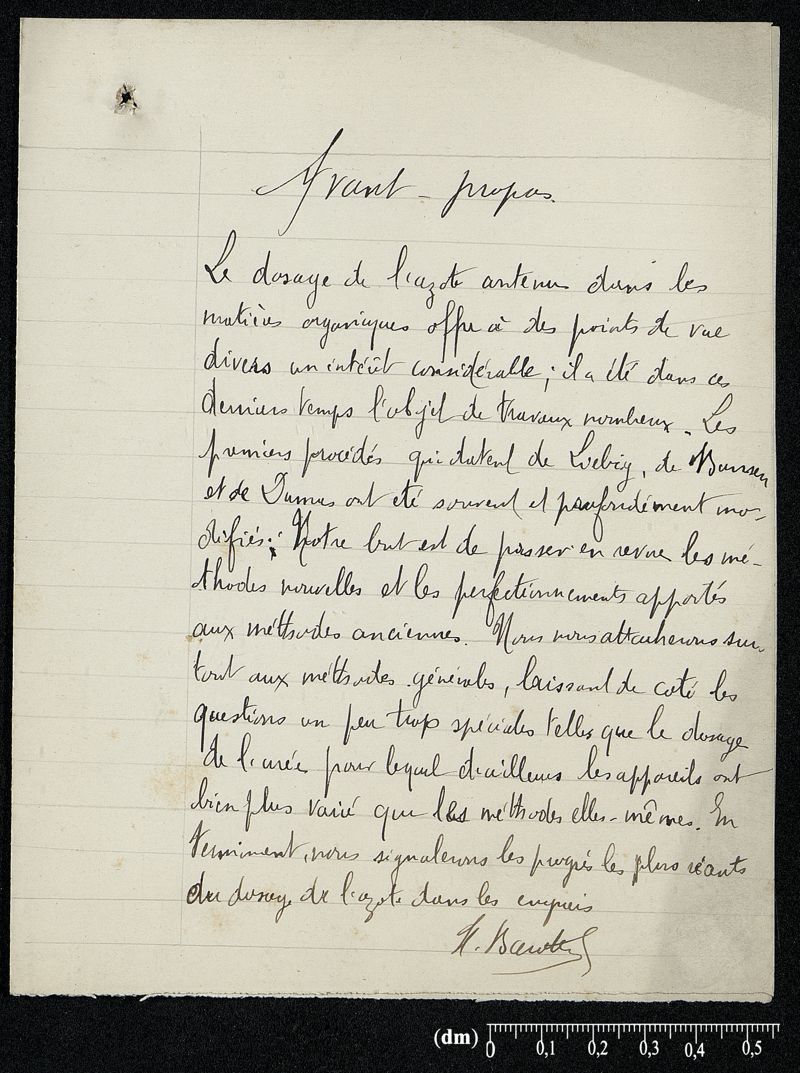 Avant-propos.
Le dosage de l'azote contenu dans les
matières organiques offre à des points de vue
divers un intérêt considérable ; il a été dans ces
derniers temps l'objet de travaux nombreux. Les
premiers procédés qui datent de Liebig, de Bunsen
et de Dumas ont été souvent et profondément mo-
difiés. Notre but est de passer en revue les mé-
thodes nouvelles et les perfectionnements apportés
aux méthodes anciennes. Nous nous attacherons sur-
tout aux méthodes générales, laissant de coté les
questions un peu trop spéciales telles que le dosage
de l'urée pour lequel d'ailleurs les appareils ont
bien plus varié que les méthodes elles-mêmes. En
terminant, nous signalerons les progrès les plus récents
du dosage de l'azote dans les engrais
(dm) 0 0,1 0,2 0,3 0,4 0,5